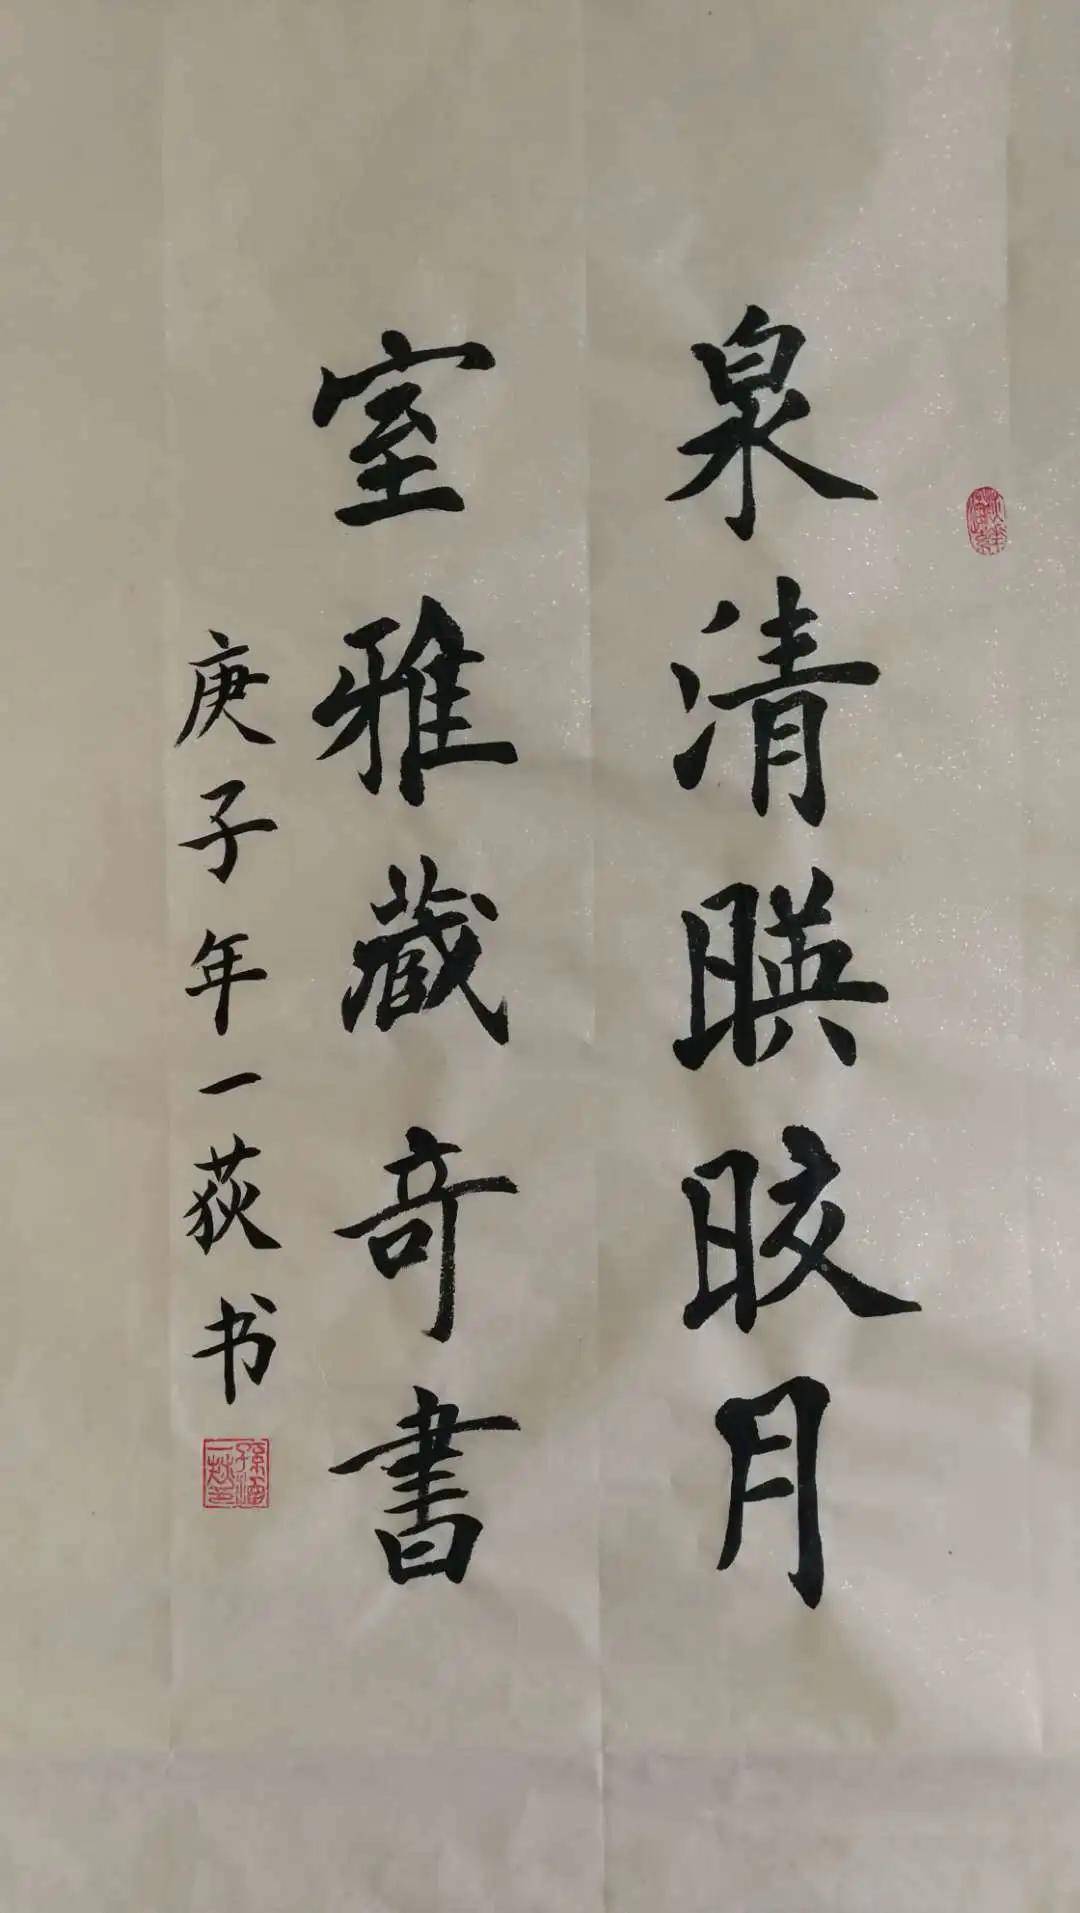 泉清暎晈月
室雅藏奇書
庚子年一荻书